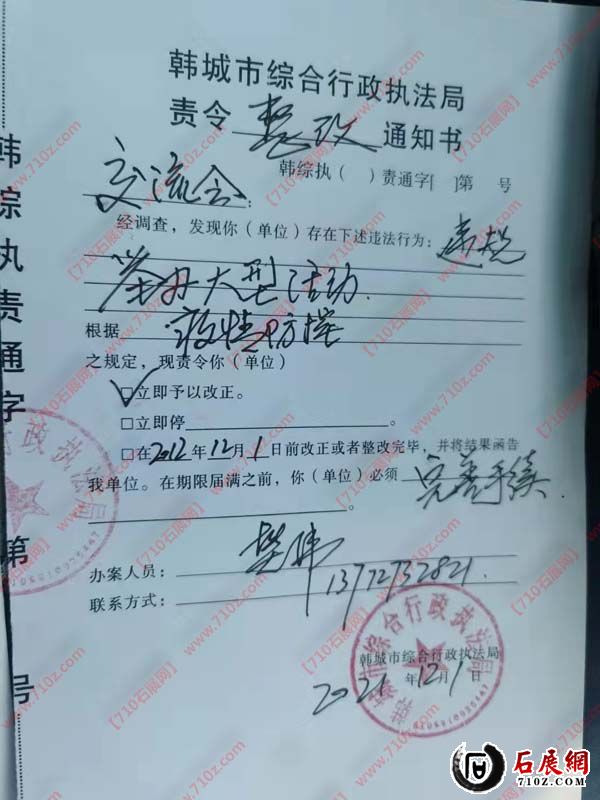 韩城市综合行政执法局
责令 整改 通知书
韩综执（ ）责通字[ ]第 号
交流会：
经调查，发现你（单位）存在下述违法行为：违规
举办大型活动.
根据 疫情防控
之规定，现责令你（单位）
☑立即予以改正。
□立即停 。
□在2012年12月1日前改正或者整改完毕，并将结果函告
我单位。在期限届满之前，你（单位）必须 完善手续
。
办案人员：
联系方式：13772732821.
韩城市综合行政执法局
2021年12月1日
韩综执责通字 第 号
石展網
www.710z.com
【710石展网】
www.710z.com